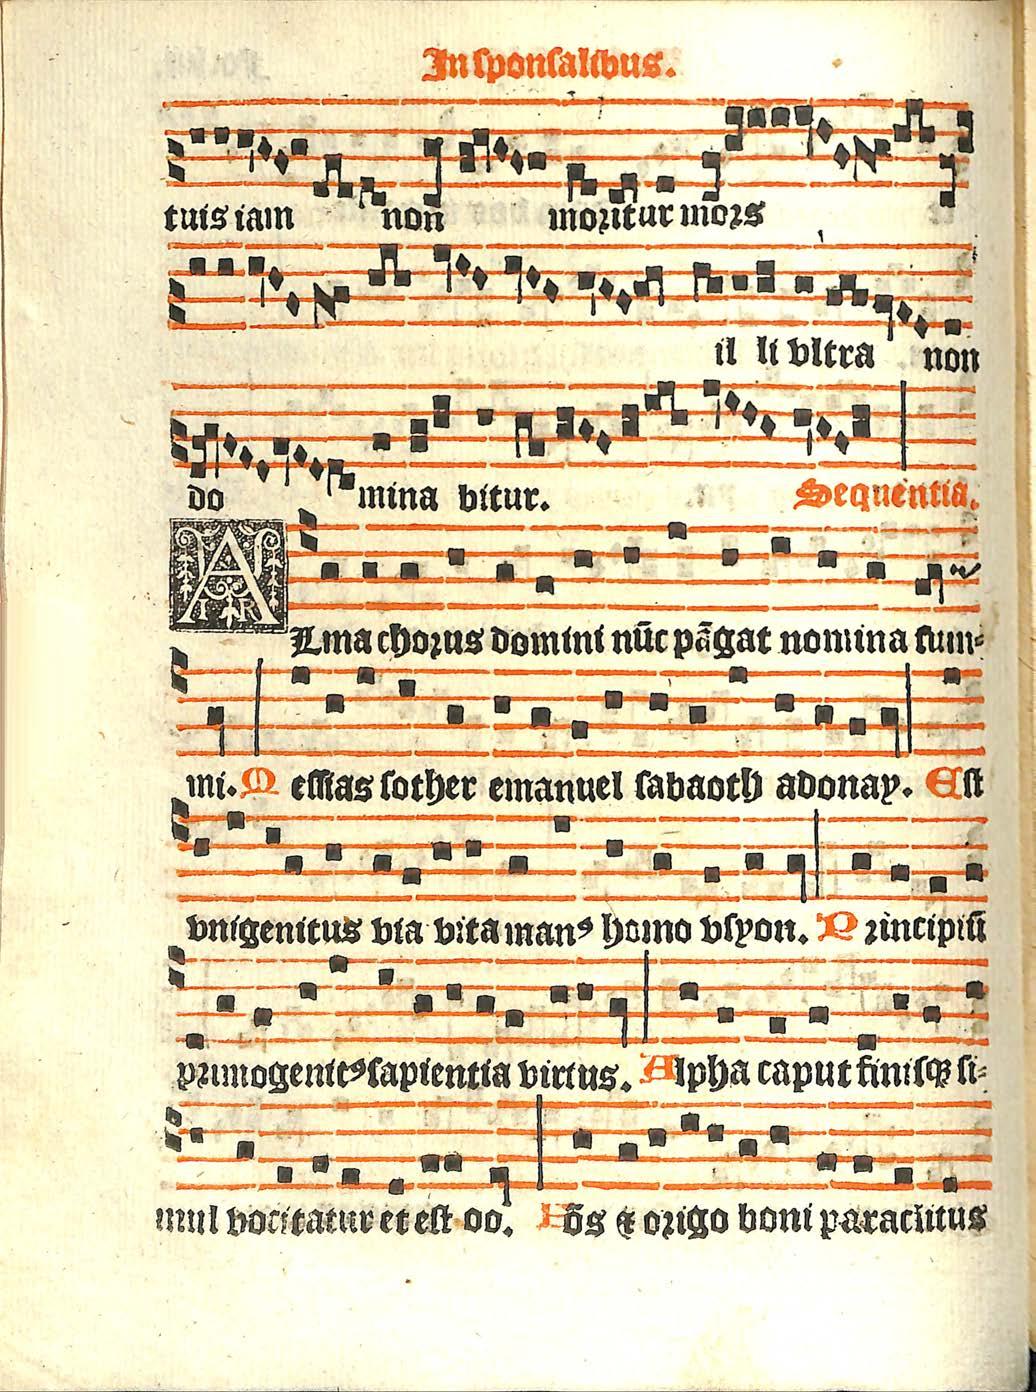 In sponsalibus.
tuis iam non moritur mors
il li vltra non
do mina bitur. Sequentia.
ALma chorus domini nūc pāgat nomina sum-
mi. Messias sother emanuel sabaoth adonay. Est
vnigenitus via vita manꝰ homo vsyon. Principiū
primogenitꝰ sapientia virtus. Alpha caput finisqꝫ si-
mul vocitatur et est oo. Fōs & origo boni paraclitus